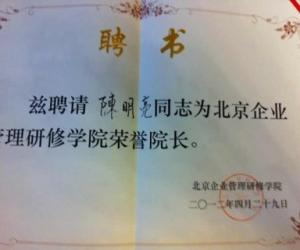 聘书
兹聘请 陳明亮同志为北京企业
管理研修学院荣誉院长。
北京企业管理研修学院
二〇一二年四月二十九日